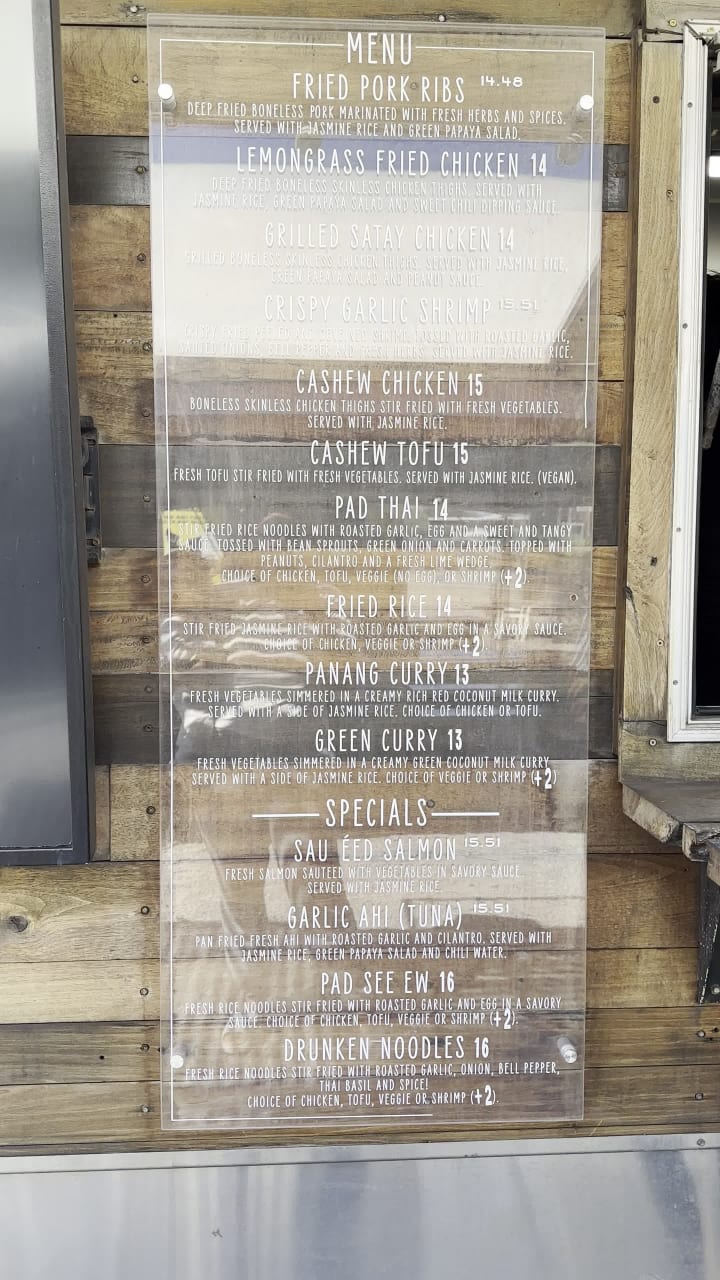 MENU
FRIED PORK RIBS 14.48
DEEP FRIED BONELESS PORK MARINATED WITH FRESH HERBS AND SPICES.
SERVED WITH JASMINE RICE AND GREEN PAPAYA SALAD.
LEMONGRASS FRIED CHICKEN 14
DEEP FRIED BONELESS SKINLESS CHICKEN THIGHS. SERVED WITH
JASMINE RICE, GREEN PAPAYA SALAD AND SWEET CHILI DIPPING SAUCE.
GRILLED SATAY CHICKEN 14
GRILLED BONELESS SKINLESS CHICKEN THIGHS. SERVED WITH JASMINE RICE,
GREEN PAPAYA SALAD AND PEANUT SAUCE.
CRISPY GARLIC SHRIMP 15.51
CRISPY FRIED SHRIMP TOSSED WITH ROASTED GARLIC,
SERVED WITH JASMINE RICE.
CASHEW CHICKEN 15
BONELESS SKINLESS CHICKEN THIGHS STIR FRIED WITH FRESH VEGETABLES.
SERVED WITH JASMINE RICE.
CASHEW TOFU 15
FRESH TOFU STIR FRIED WITH FRESH VEGETABLES. SERVED WITH JASMINE RICE. (VEGAN).
PAD THAI 14
STIR FRIED RICE NOODLES WITH ROASTED GARLIC, EGG AND A SWEET AND TANGY
SAUCE. TOSSED WITH BEAN SPROUTS, GREEN ONION AND CARROTS. TOPPED WITH
PEANUTS, CILANTRO AND A FRESH LIME WEDGE.
CHOICE OF CHICKEN, TOFU, VEGGIE (NO EGG), OR SHRIMP (+2).
FRIED RICE 14
STIR FRIED JASMINE RICE WITH ROASTED GARLIC AND EGG IN A SAVORY SAUCE.
CHOICE OF CHICKEN, VEGGIE OR SHRIMP (+2).
PANANG CURRY 13
FRESH VEGETABLES SIMMERED IN A CREAMY RICH RED COCONUT MILK CURRY.
SERVED WITH A SIDE OF JASMINE RICE. CHOICE OF CHICKEN OR TOFU.
GREEN CURRY 13
FRESH VEGETABLES SIMMERED IN A CREAMY GREEN COCONUT MILK CURRY
SERVED WITH A SIDE OF JASMINE RICE. CHOICE OF VEGGIE OR SHRIMP (+2)
SPECIALS
SAU ÉED SALMON 15.51
FRESH SALMON SAUTEED WITH VEGETABLES IN SAVORY SAUCE.
SERVED WITH JASMINE RICE.
GARLIC AHI (TUNA) 15.51
PAN FRIED FRESH AHI WITH ROASTED GARLIC AND CILANTRO. SERVED WITH
JASMINE RICE, GREEN PAPAYA SALAD AND CHILI WATER.
PAD SEE EW 16
FRESH RICE NOODLES STIR FRIED WITH ROASTED GARLIC AND EGG IN A SAVORY
SAUCE. CHOICE OF CHICKEN, TOFU, VEGGIE OR SHRIMP (+2).
DRUNKEN NOODLES 16
FRESH RICE NOODLES STIR FRIED WITH ROASTED GARLIC, ONION, BELL PEPPER,
THAI BASIL AND SPICE!
CHOICE OF CHICKEN, TOFU, VEGGIE OR SHRIMP (+2).